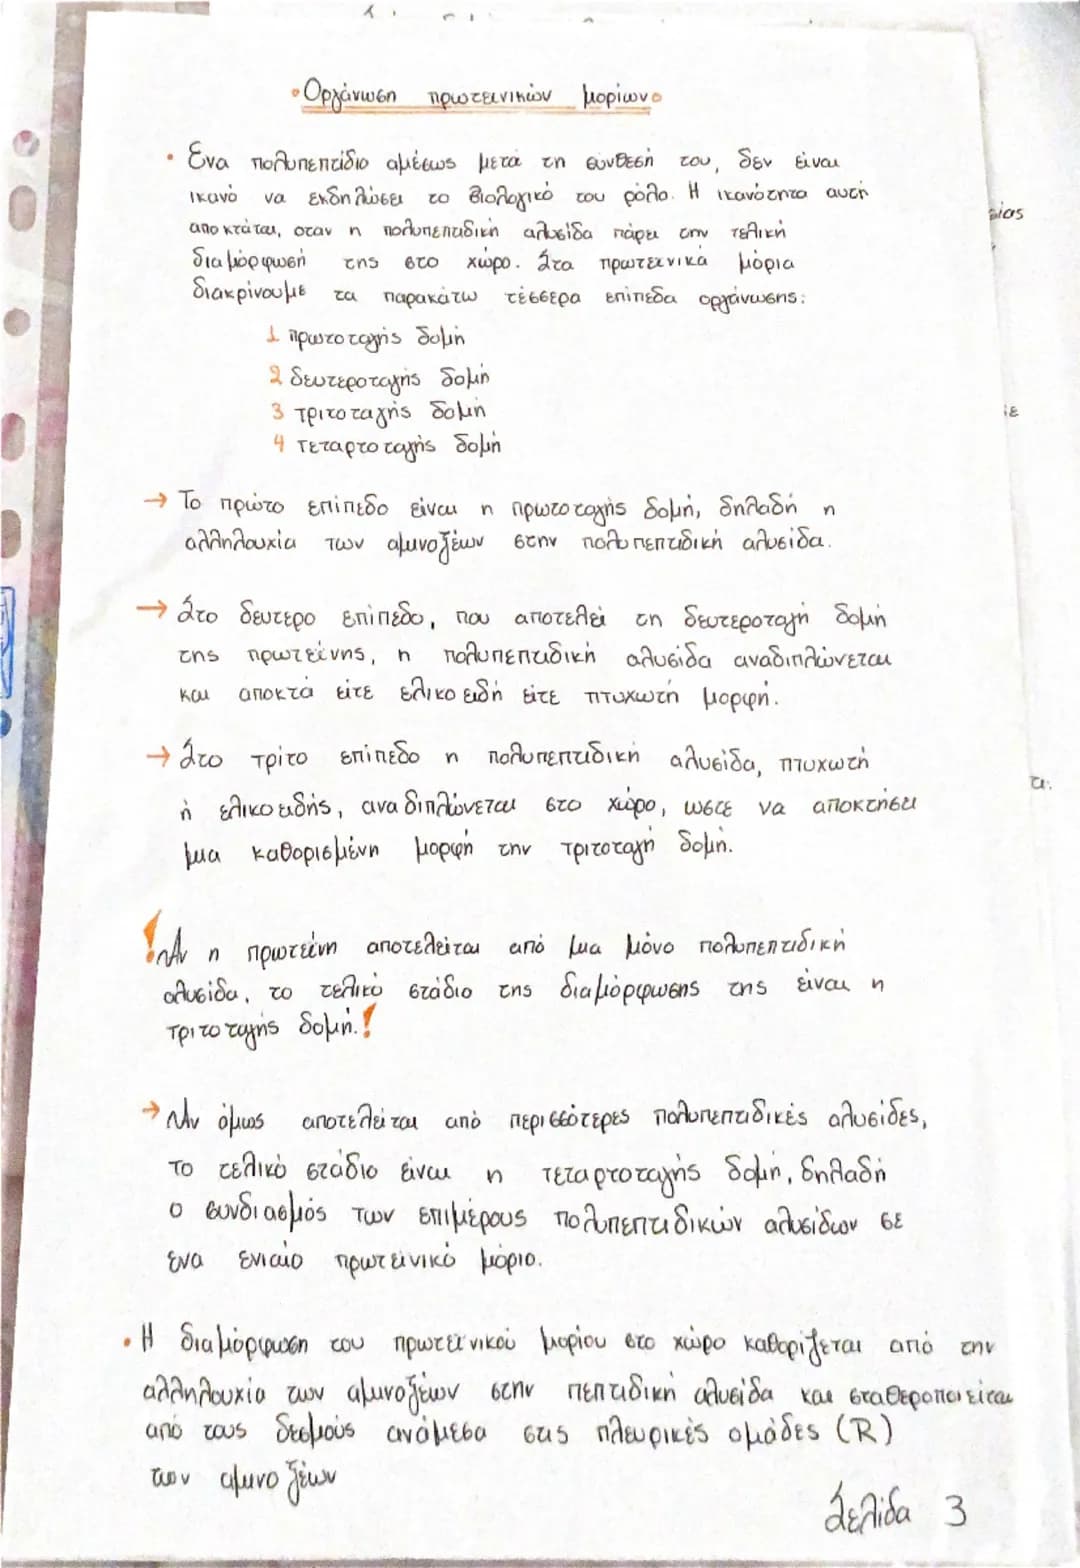 Οργάνωση πρωτεϊνικών μορίων
• Ένα πολυπεπτίδιο αμέσως μετά τη σύνθεσή του, δεν είναι
ικανό να εκδηλώσει το βιολογικό του ρόλο. Η ικανότητα αυτή
αποκτάται, όταν η πολυπεπτιδική αλυσίδα πάρει την τελική
διαμόρφωσή της στο χώρο. Στα πρωτεϊνικά μόρια
διακρίνουμε τα παρακάτω τέσσερα επίπεδα οργάνωσης:
1 πρωτοταγής δομή
2 δευτεροταγής δομή
3 τριτοταγής δομή
4 τεταρτοταγής δομή
→ Το πρώτο επίπεδο είναι η πρωτοταγής δομή, δηλαδή η
αλληλουχία των αμινοξέων στην πολυπεπτιδική αλυσίδα.
→ Στο δευτερο επίπεδο, που αποτελεί τη δευτεροταγή δομή
της πρωτεΐνης, η πολυπεπτιδική αλυσίδα αναδιπλώνεται
και αποκτά είτε ελικοειδή είτε πτυχωτή μορφή.
→ Στο τρίτο επίπεδο η πολυπεπτιδική αλυσίδα, πτυχωτή
ή ελικοειδής, αναδιπλώνεται στο χώρο, ωστε να αποκτήσει
μια καθορισμένη μορφή την τριτοταγή δομή.
! Αν η πρωτεΐνη αποτελείται από μια μόνο πολυπεπτιδική
αλυσίδα, το τελικό στάδιο της διαμόρφωσης της είναι η
τριτοταγής δομή. !
→ Αν όμως αποτελείται από περισσότερες πολυπεπτιδικές αλυσίδες,
το τελικό στάδιο είναι η τεταρτοταγής δομή, δηλαδή
ο συνδιασμός των επιμέρους πολυπεπτιδικών αλυσίδων σε
ένα ενιαίο πρωτεϊνικό μόριο.
• Η διαμόρφωση του πρωτεϊνικού μορίου στο χώρο καθορίζεται από την
αλληλουχία των αμινοξέων στην πεπτιδική αλυσίδα και σταθεροποιείται
από τους δεσμούς ανάμεσα στις πλευρικές ομάδες (R)
των αμινοξέων
Σελίδα 3